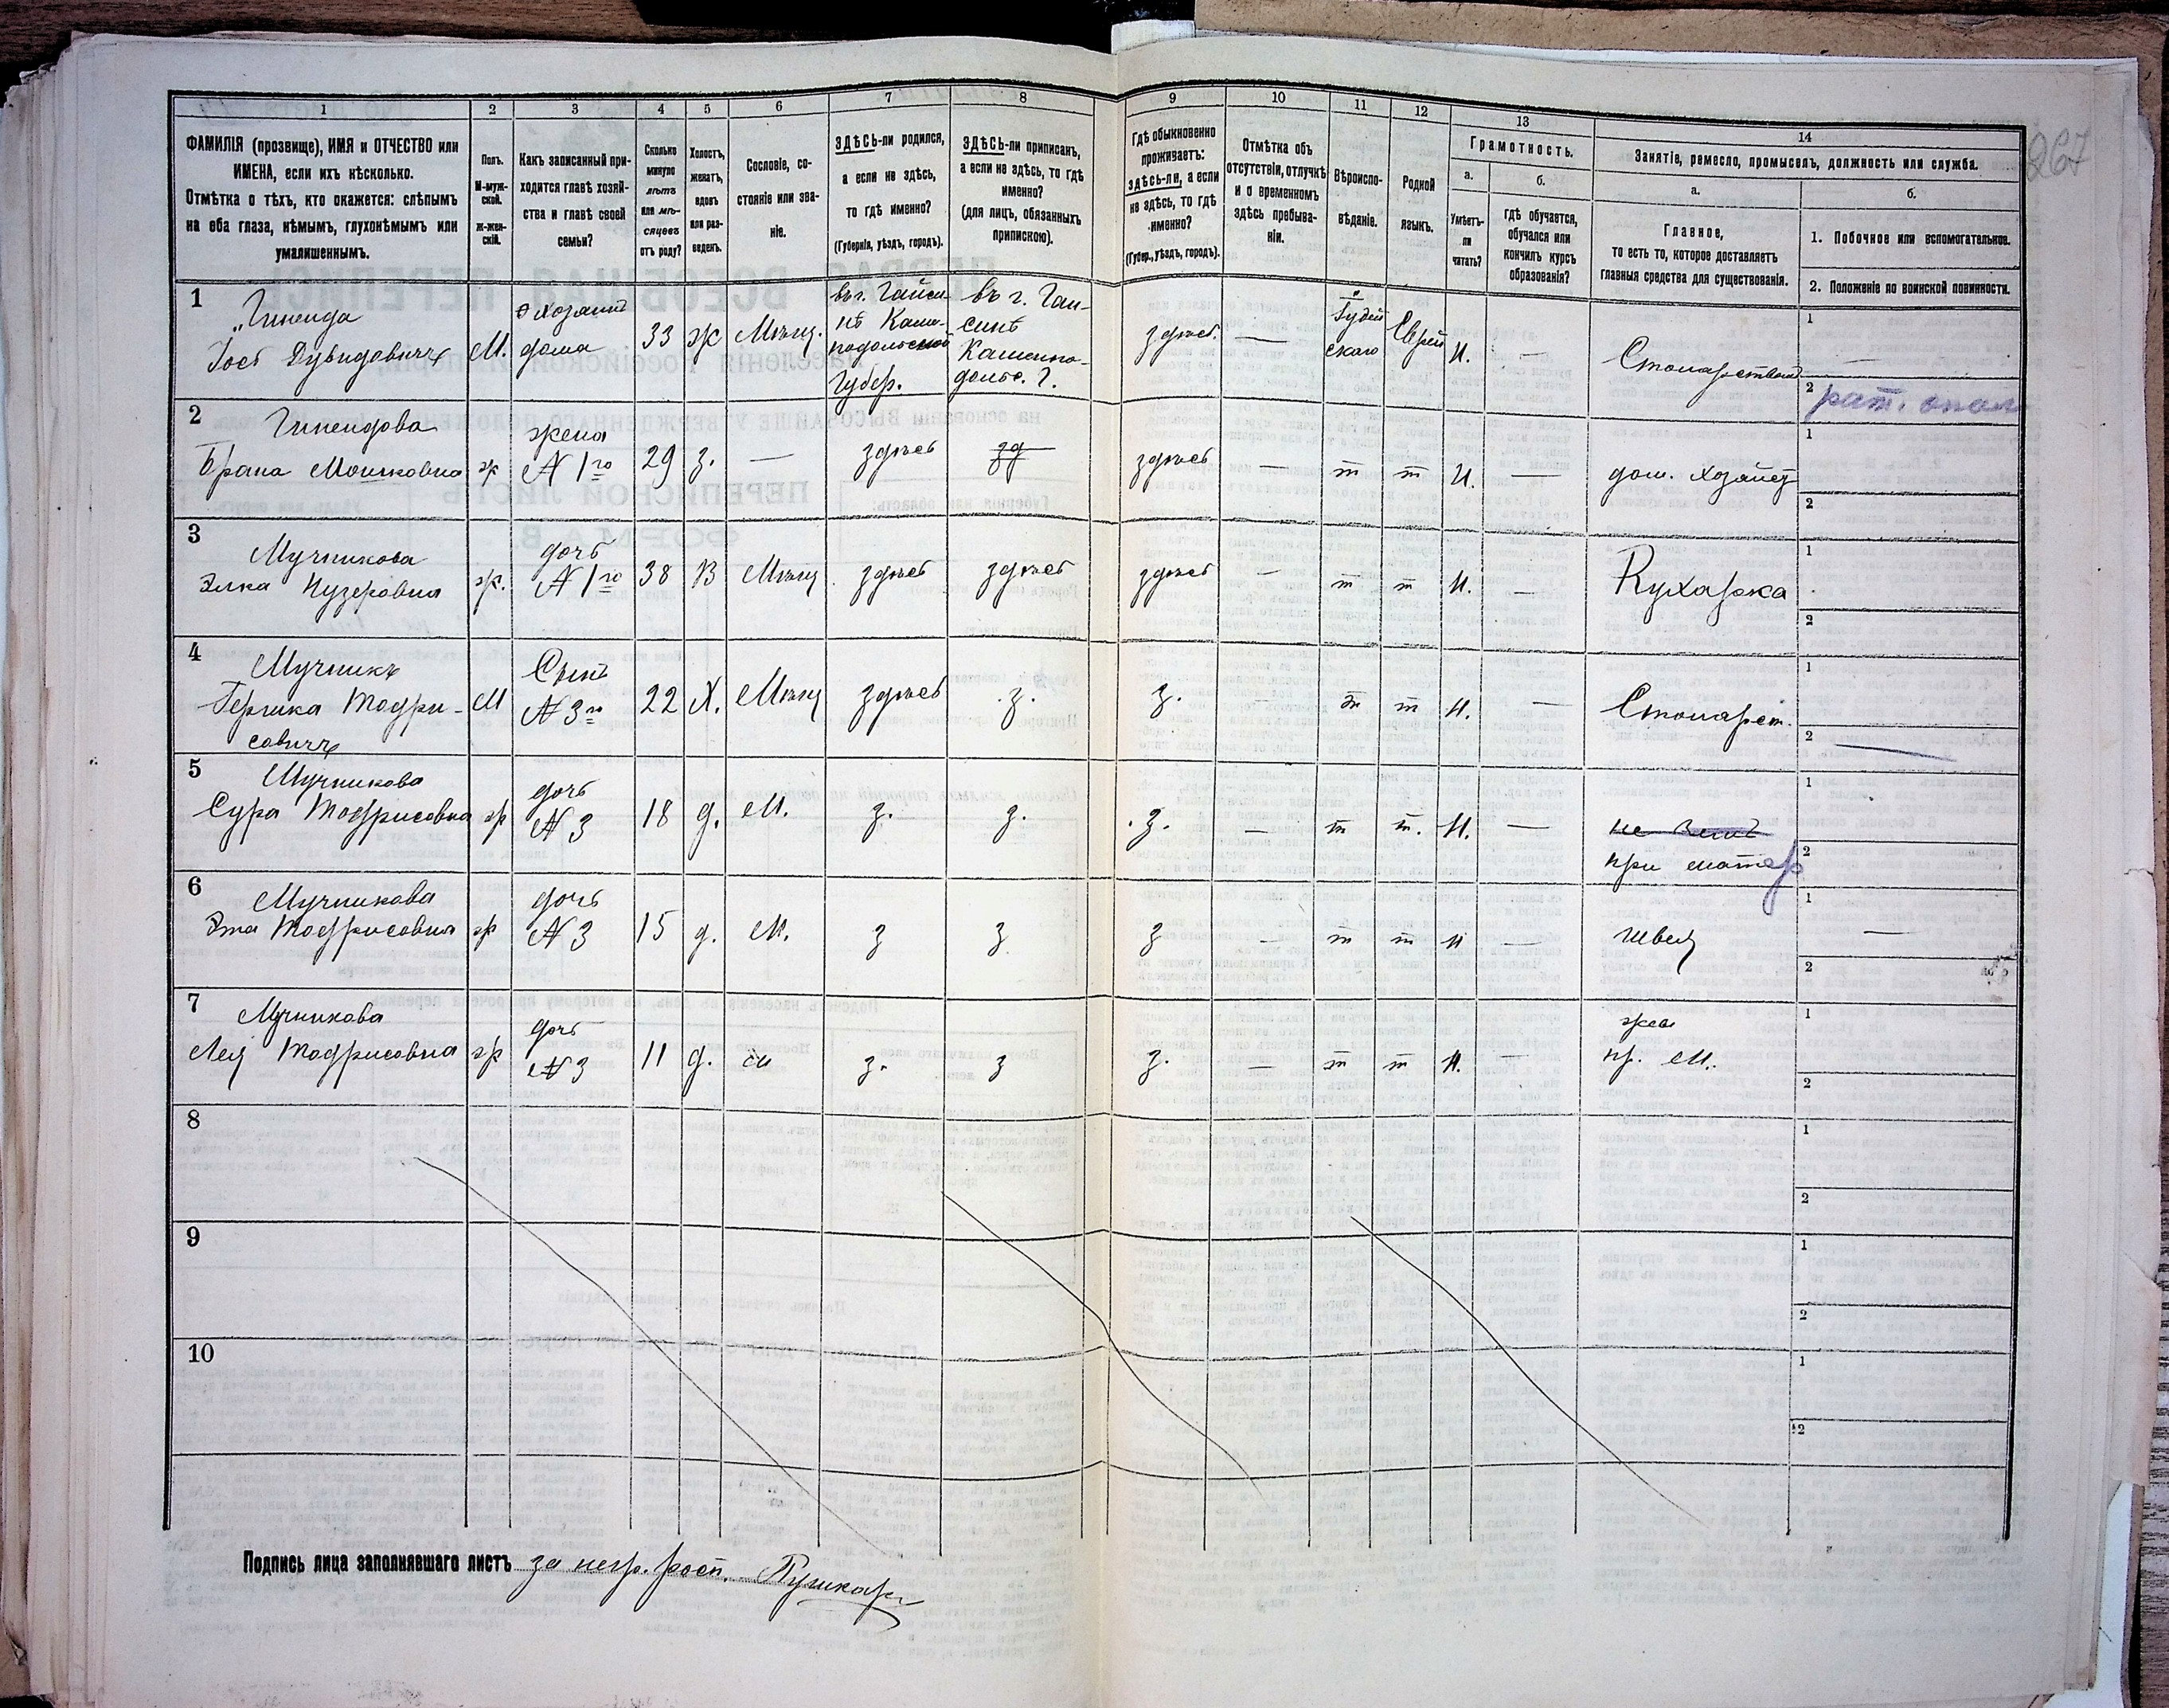 1 2 3 4 5 6 7 8 9 10 11 12 13 14
267
ФАМИЛІЯ (прозвище), ИМЯ и ОТЧЕСТВО или
ИМЕНА, если ихъ нѣсколько.
Отмѣтка о тѣхъ, кто окажется: слѣпымъ
на оба глаза, нѣмымъ, глухонѣмымъ или
умалишеннымъ.
Полъ.
М-муж-
ской.
Ж-жен-
скій.
Какъ записанный при-
ходится главѣ хозяй-
ства и главѣ своей
семьи?
Сколько
минуло
лѣтъ
или мѣ-
сяцевъ
отъ роду?
Холостъ,
женатъ,
вдовъ
или раз-
веденъ.
Сословіе, со-
стояніе или зва-
ніе.
ЗДѢСЬ-ли родился,
а если не здѣсь,
то гдѣ именно?
(Губернія, уѣздъ, городъ).
ЗДѢСЬ-ли приписанъ,
а если не здѣсь, то гдѣ
именно?
(для лицъ, обязанныхъ
припискою).
Гдѣ обыкновенно
проживаетъ:
здѣсь-ли, а если
не здѣсь, то гдѣ
именно?
(Губер., уѣздъ, городъ).
Отмѣтка объ
отсутствіи, отлучкѣ
и о временномъ
здѣсь пребыва-
ніи.
Вѣроиспо-
вѣданіе.
Родной
языкъ.
Грамотность.
а.
Умѣетъ-
ли
читать?
б.
гдѣ обучается,
обучался или
кончилъ курсъ
образованія?
Занятіе, ремесло, промыселъ, должность или служба.
а.
Главное,
то есть то, которое доставляетъ
главныя средства для существованія.
б.
1. Побочное или вспомогательное.
2. Положеніе по воинской повинности.
1
Дувидовичъ
М.
Хозяинъ
дома
33
ж
Мѣщ.
въ г. Гайси-
нѣ Каме-
подольской
Губер.
въ г. Гай-
синѣ
Каменно-
дольс. Г.
здѣсь.
—
Іудей
ского
Еврей
Н.
—
Столярством
1 —
2 рат. опол
2
Брана Мошковна
ж
жена
№ 1го
29
з.
—
здѣсь
зд
здѣсь
—
т
т
Н.
—
дом. хозяйст
1
2
3
Мучникова
Элка Нузеровна
ж.
дочь
№ 1го
38
В
Мѣщ
здѣсь
здѣсь
здѣсь
—
т
т
Н.
—
Кухарка
1
2
4
Мучникъ
Гершка Тодри-
совичъ
М
Сынъ
№ 3го
22
Х.
Мѣщ
здѣсь
з.
з.
т
т
Н.
—
Столярст.
1
2 —
5
Мучникова
Сура Тодрисовна
жр
дочь
№ 3
18
д.
М.
з.
з.
з.
—
т
т.
Н.
—
при матер
1
2
6
Мучникова
Эта Тодрисовна
жр
дочь
№ 3
15
д.
М.
з
з
з
—
т
т
Н
—
швея
1 —
2
7
Мучникова
Лея Тодрисовна
жр
дочь
№ 3
11
д.
м
з.
з
з.
—
т
т
Н.
—
пр. М.
1
2
8
1
2
9
1
2
10
1
2
Подпись лица заполнявшаго листъ за негр. росп. Пушкар